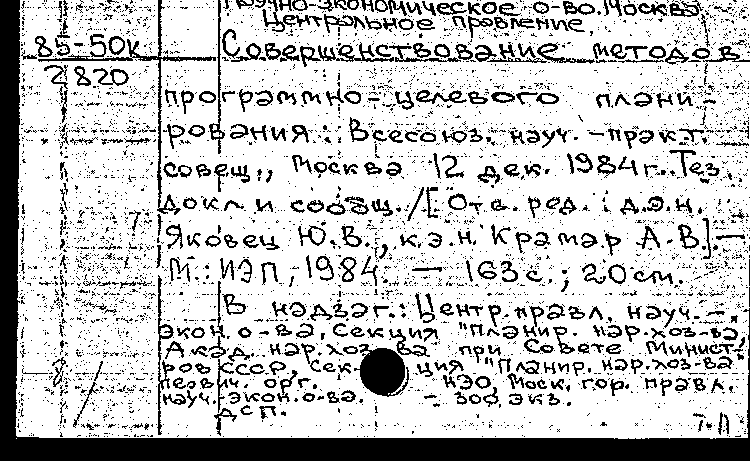 Научно-экономическое о-во. Москва.
Центральное правление.
85-50к Совершенствование методов
2820
программно-целевого плани-
рования: Всесоюз. науч.-практ.
совещ., Москва 12 дек. 1984г. Тез.
докл и сообщ. /[Отв. ред.: д.э.н.
Яковец Ю.В., к.э.н. Крамар А.В.].—
М.: ИЭП, 1984. — 163с.; 20см.
В надзаг.: Центр. правл. науч.-
экон. о-ва, Секция "Планир. нар.хоз-ва",
Акад. нар.хоз-ва при Совете Минист-
ров СССР, Секция "Планир. нар.хоз-ва"
первич. орг. НЭО, Моск. гор. правл.
науч.-экон.о-ва. — 300 экз.
ДСП.